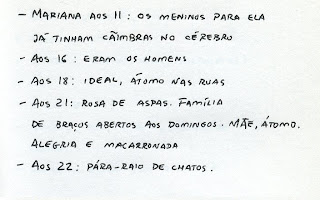 - MARIANA AOS 11: OS MENINOS PARA ELA
JÁ TINHAM CÃIMBRAS NO CÉREBRO
- AOS 16: ERAM OS HOMENS
- AOS 18: IDEAL, ÁTOMO NAS RUAS
- AOS 21: ROSA DE ASPAS. FAMÍLIA
DE BRAÇOS ABERTOS AOS DOMINGOS. MÃE, ÁTOMO.
ALEGRIA E MACARRONADA
- AOS 22: PÁRA-RAIO DE CHATOS.